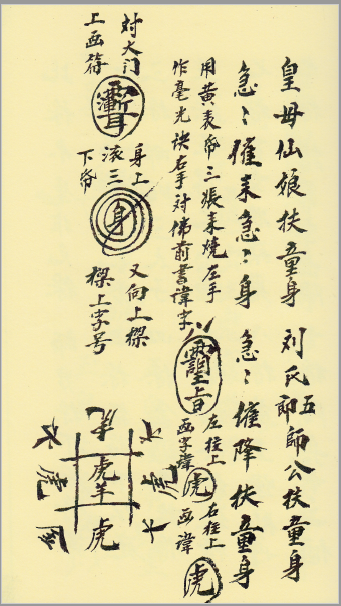 皇母仙娘扶童身 刘氏五郎師公扶童身
急〻催来急〻身 急〻催降扶童身
用黄表帋三張来燒左手
作毫光訣右手対佛前書諱字
左柱上
画字諱
虎
右柱上
画諱
虎
対大门
上画符
身上
滚三
下帋
身
又向上樑
樑上字号
虎
虎
羊
虎